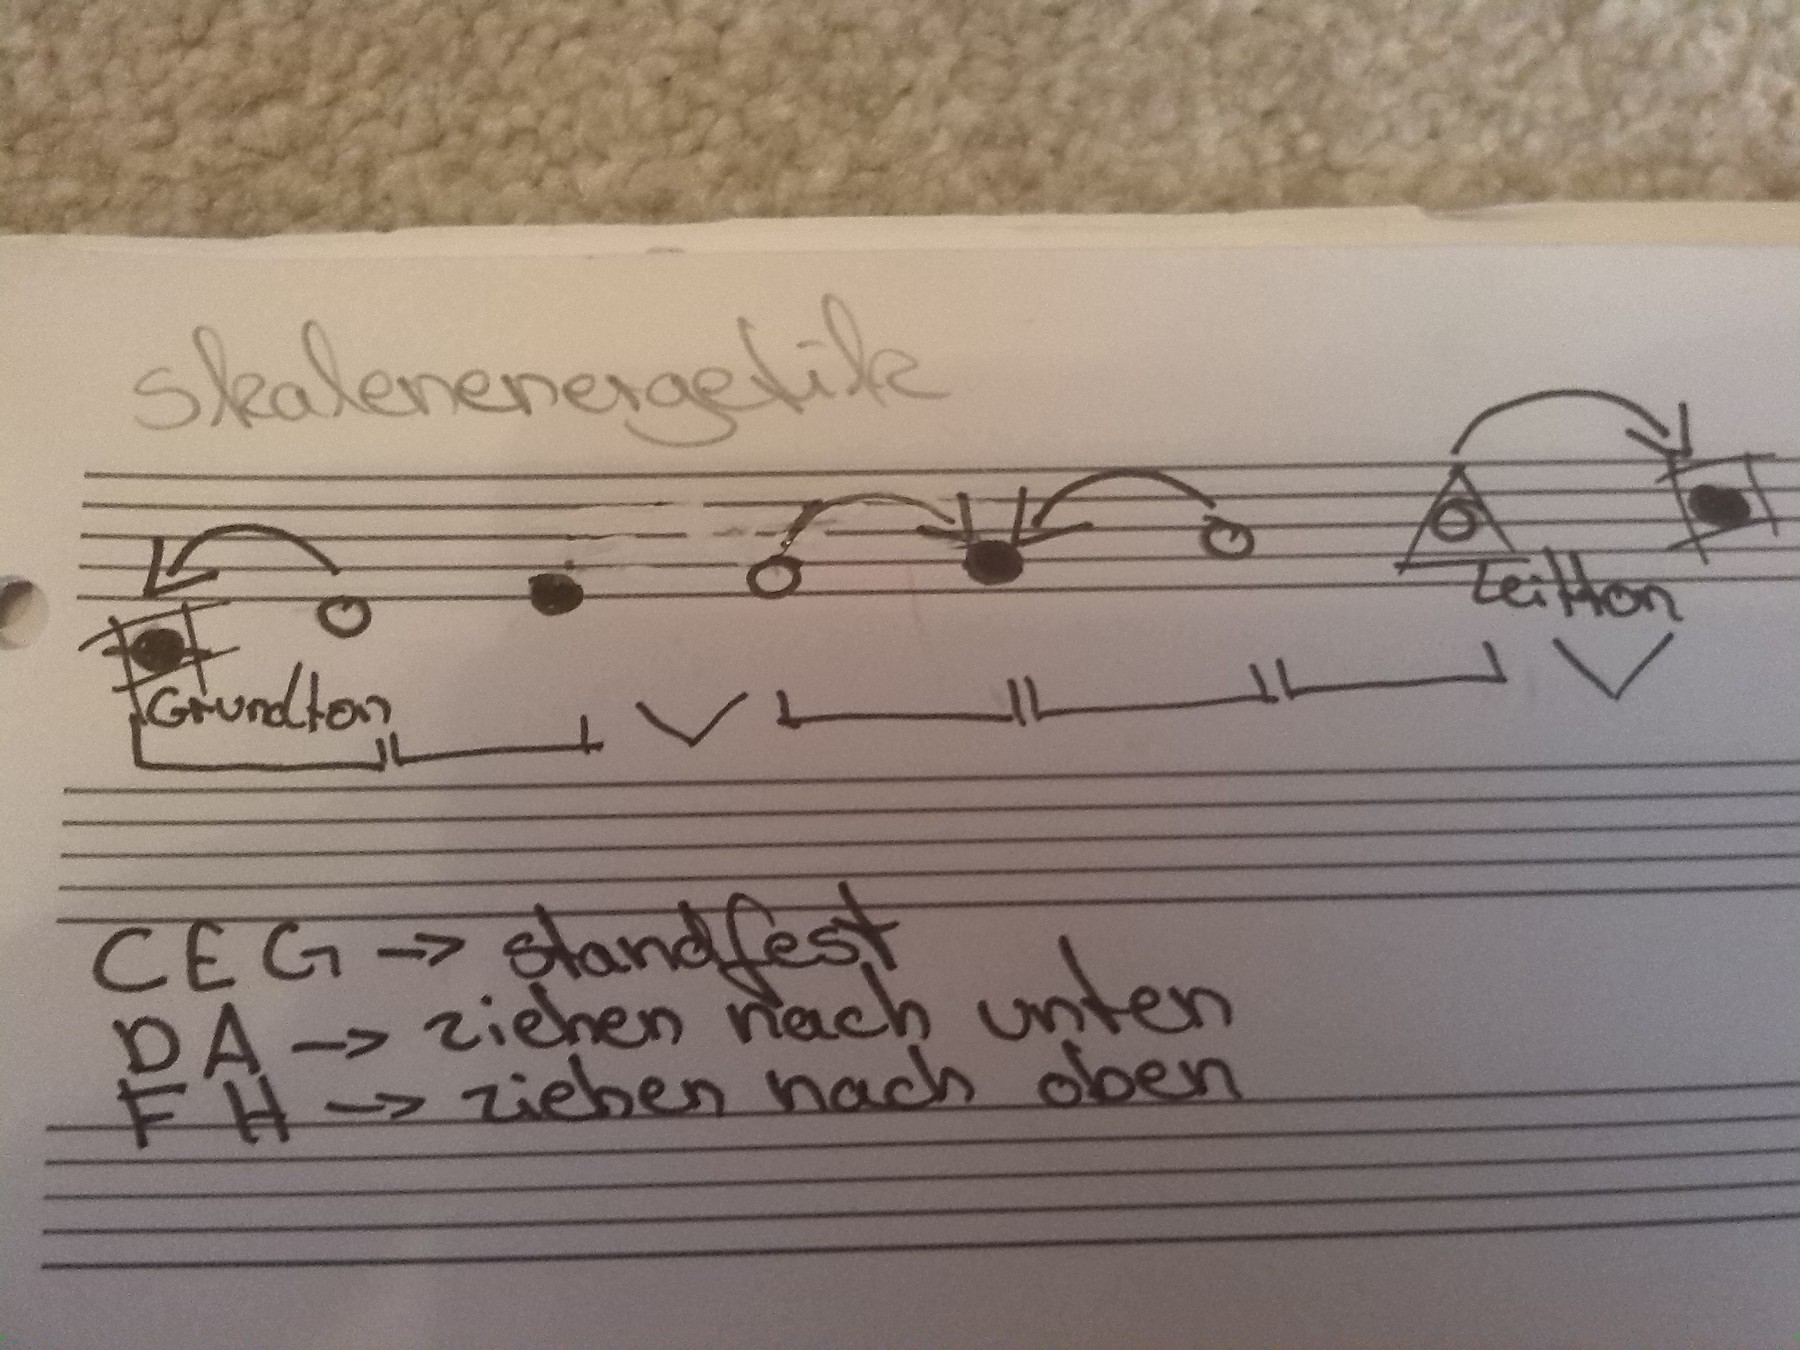 skalenenergetik
Leitton
Grundton
C E G -> standfest
D A -> ziehen nach unten
F H -> ziehen nach oben